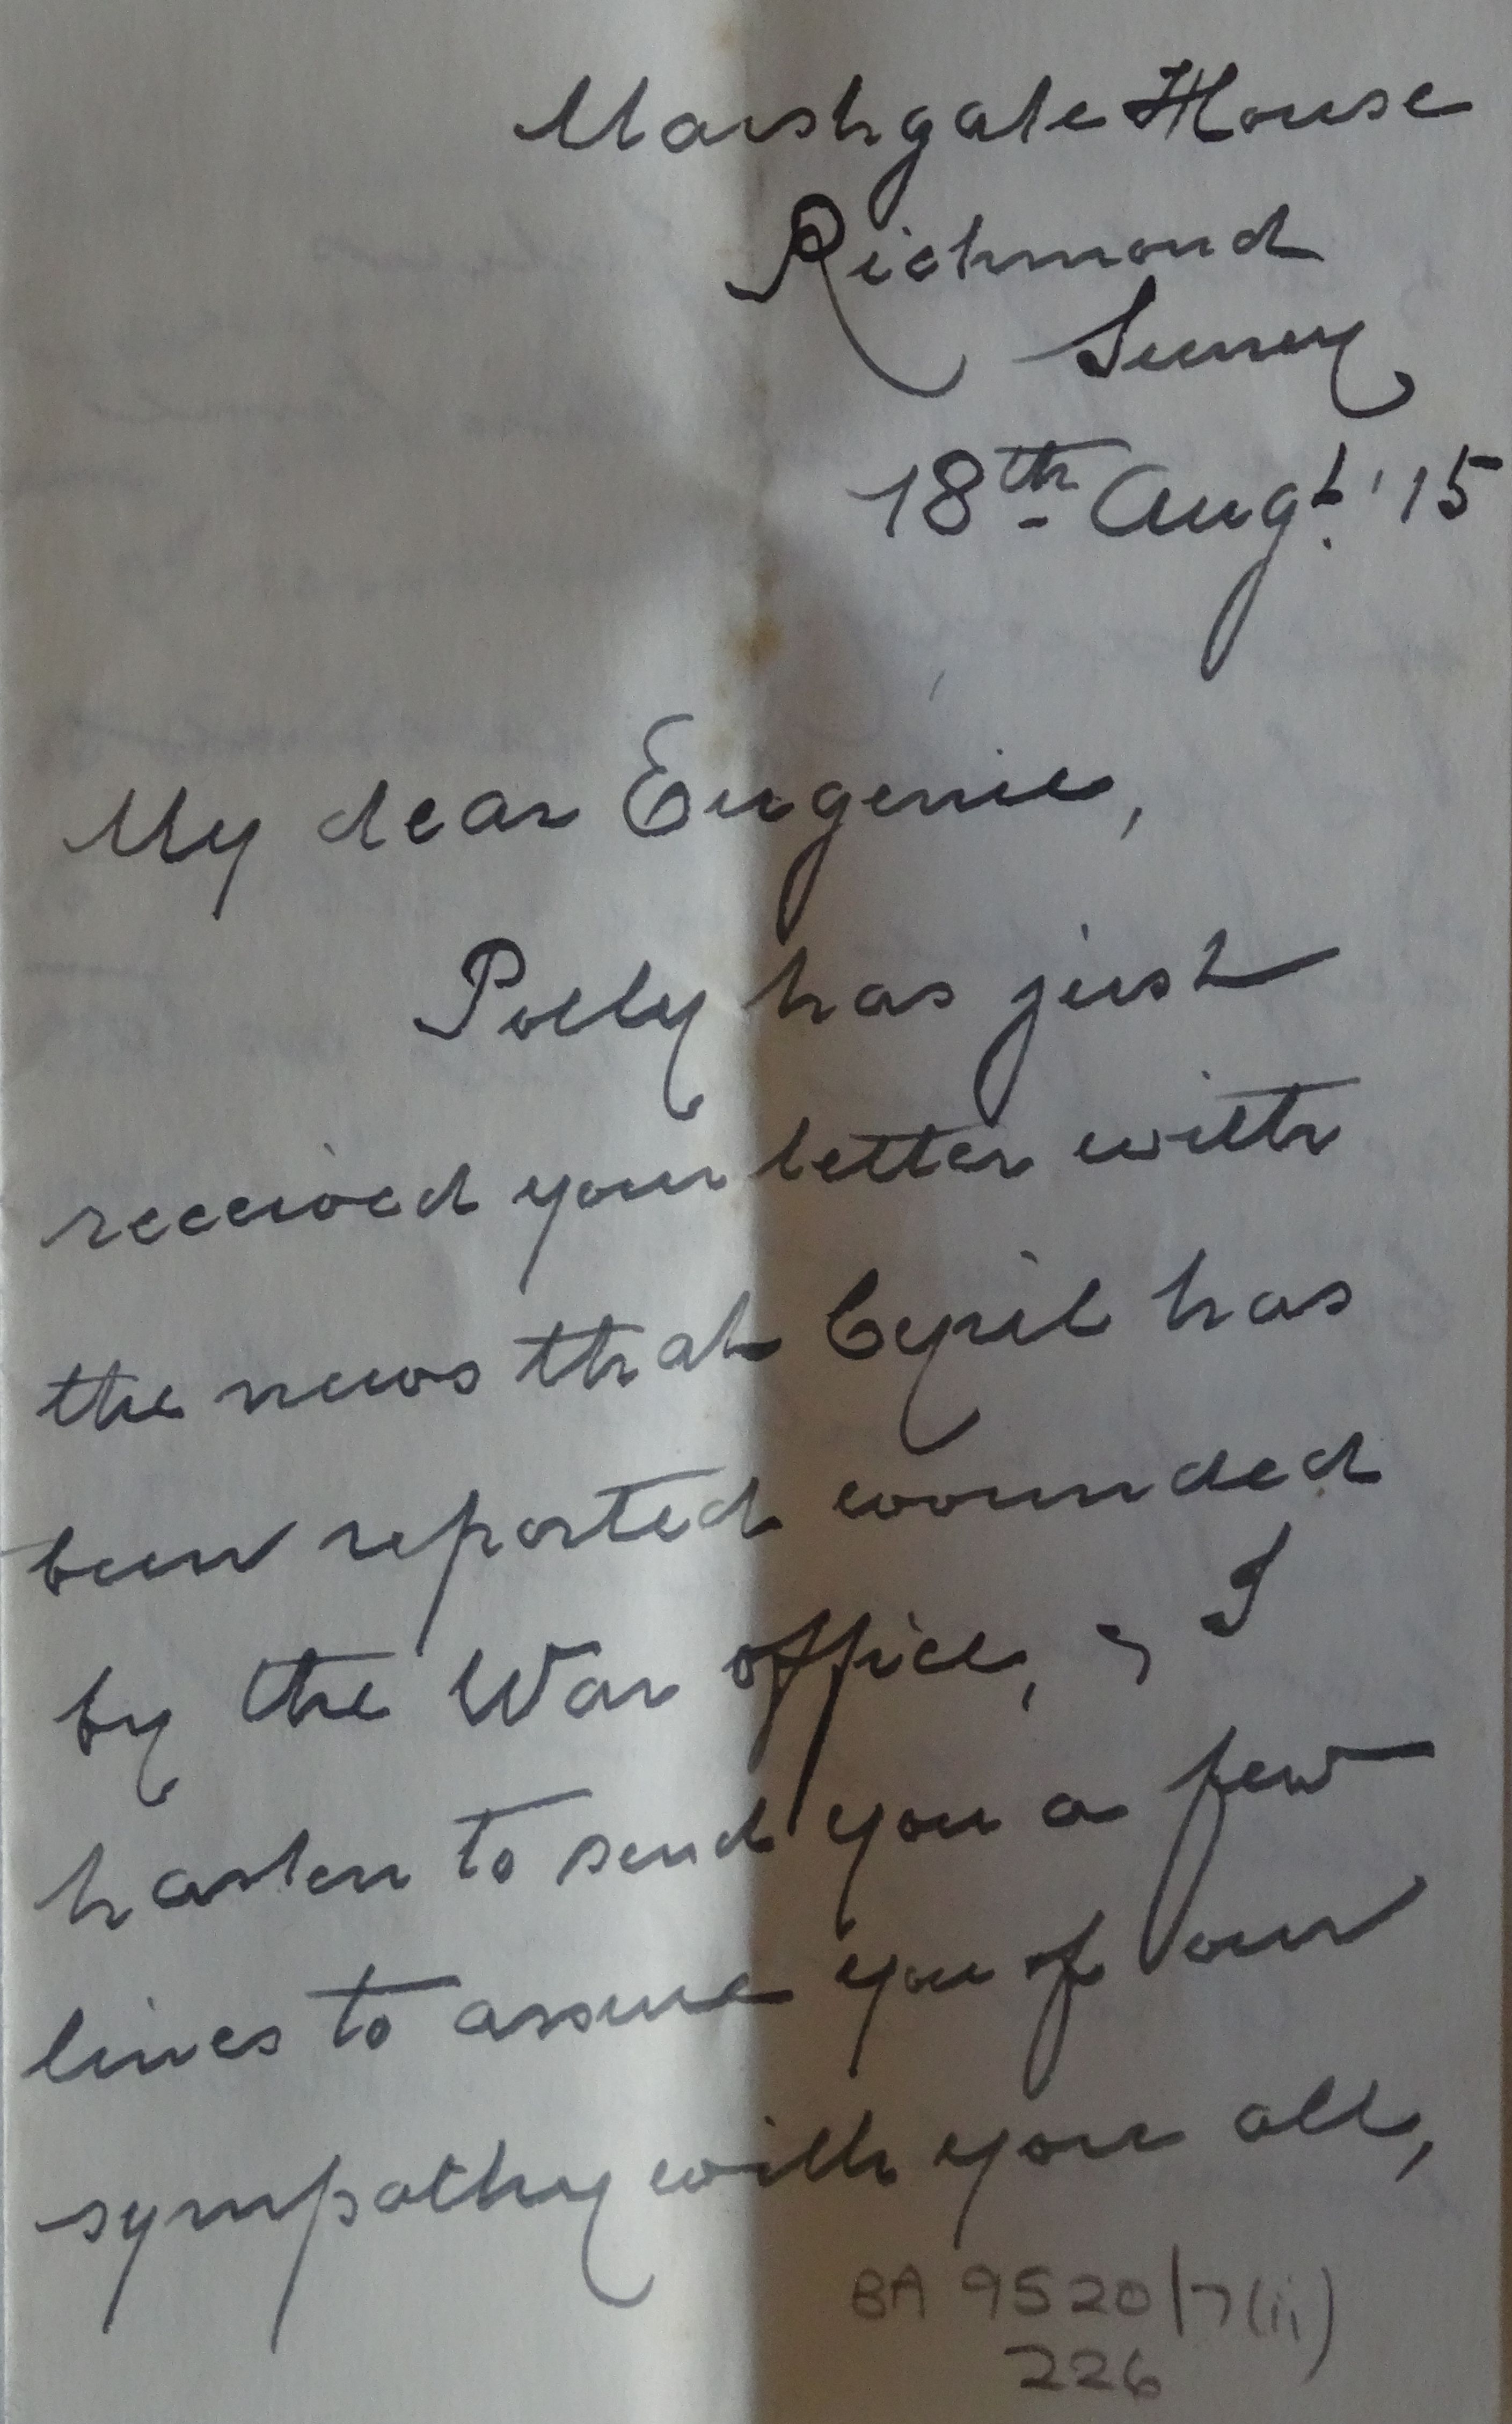 Marshgate House
Richmond
Surrey
18th Augt. '15
My dear Eugenie,
Polly has just
received your letter with
the news that Cyril has
been reported wounded
by the War office, & I
hasten to send you a few
lines to assure you of our
sympathy with you all,
BA 9520/7(ii)
226